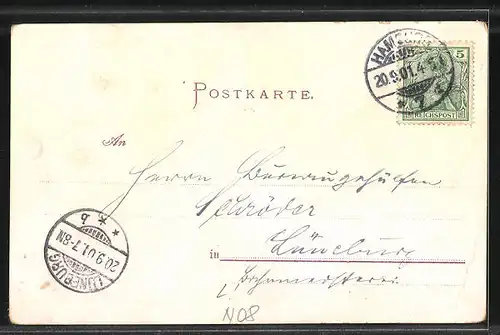 HAMBURG
20.9.01.4-5N
* 7 c
5
REICHSPOST
POSTKARTE.
An
Herrn Bureaugehülfen
Schröder
in Lüneburg
Bahnmeisterei
LÜNEBURG
20.9.01.7-8N
* b *
N08